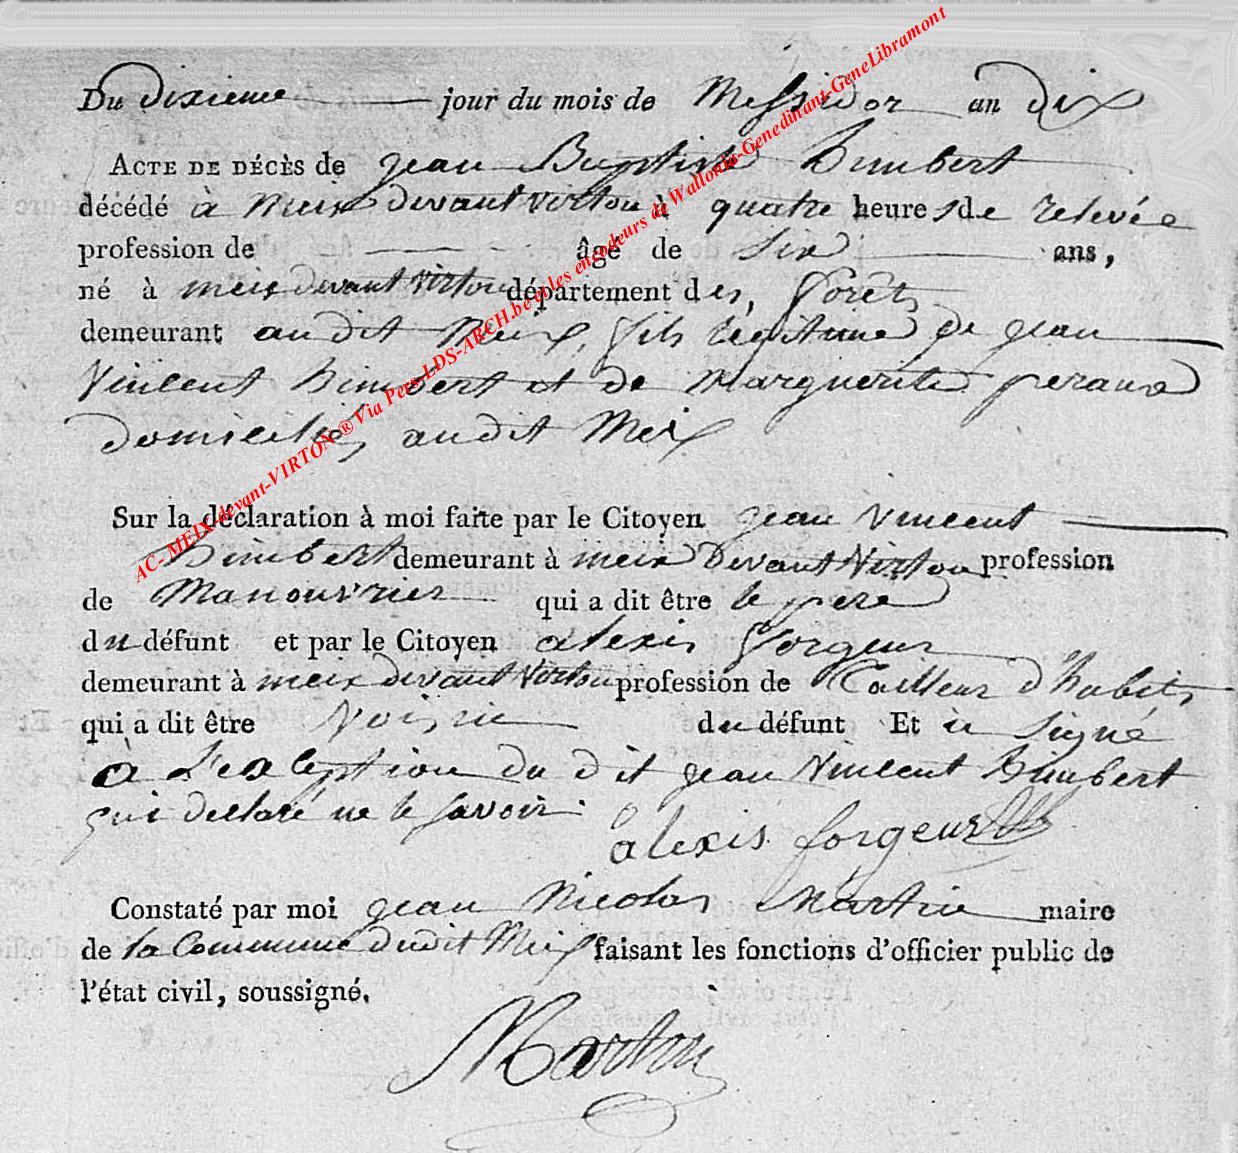 Du dixieme jour du mois de Messidor an dix
ACTE DE DÉCÈS de jean Baptiste himbert
décédé à Meix devant virton à quatre heures de relevée
profession de âgé de six ans,
né à meix devant virton département des forêts
demeurant au dit Meix, fils légitime de jean
Vincent himbert et de Marguerite
domiciliés audit Meix
Sur la déclaration à moi faite par le Citoyen jean vincent
himbert demeurant à meix devant Virton profession
de Manouvrier qui a dit être le pere
du défunt et par le Citoyen alexis forgeur
demeurant à meix devant Virton profession de Tailleur d'habits
qui a dit être Voisin du défunt Et a signé
à l'exception du dit jean vincent himbert
qui declaré ne le savoir.
alexis forgeur
Constaté par moi jean Nicolas Martin maire
de la Commune dudit Meix faisant les fonctions d'officier public de
l'état civil, soussigné.
Martin
AC- MEIX-devant-VIRTON ® Via Pers-LDS-ARCH.be et les encodeurs de Wallonia-Genedinant-GeneLibramont